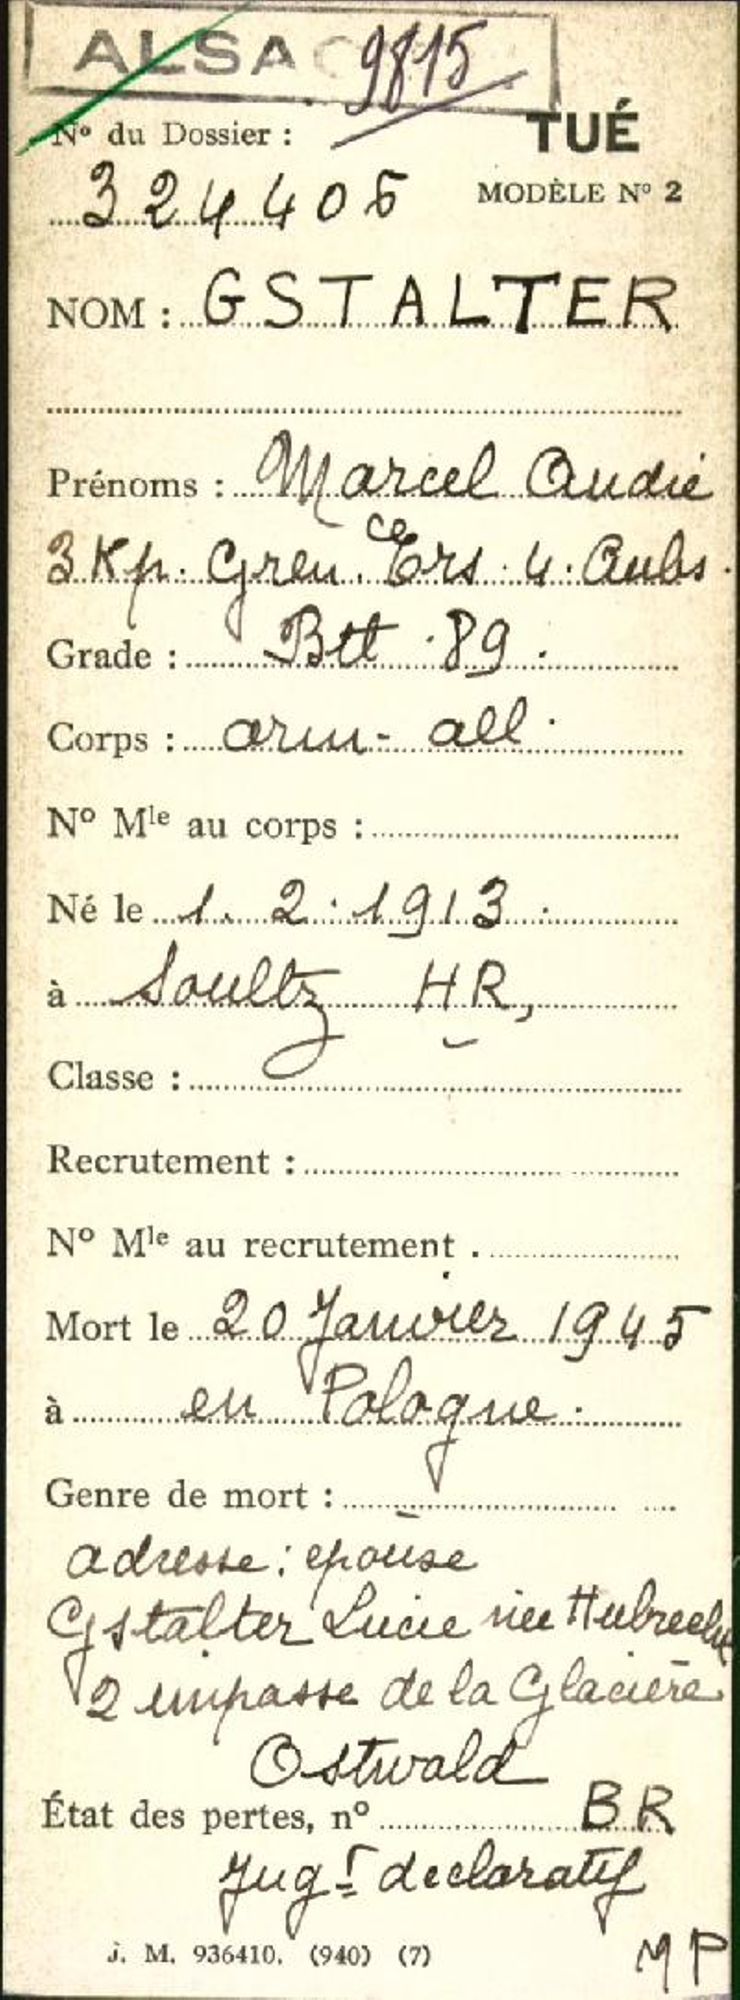 ALSA
9815
N° du Dossier :
TUÉ
324405
MODÈLE N° 2
NOM : GSTALTER
Prénoms : Marcel André
3 Kp. Gren. Ers. u. Ausb.
ce
Grade : Btt. 89.
Corps : arm. all.
N° Mle au corps :
Né le 1. 2. 1913.
à Soultz HR,
Classe :
Recrutement :
N° Mle au recrutement .
Mort le 20 Janvier 1945
à en Pologne.
Genre de mort :
adresse : epouse
Gstalter Lucie née Hubrecht
2 impasse de la Glacière
Ostwald
État des pertes, n° BR
Jugt declaratif
J. M. 936410. (940) (7)
MP